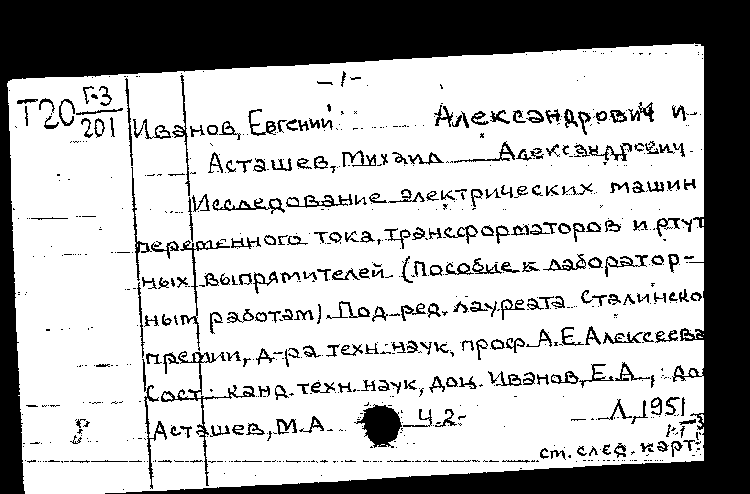 -1-
Т20 Г-3/201
Иванов, Евгений Александрович и
Асташев, Михаил Александрович
Исследование электрических машин
переменного тока, трансформаторов и ртут
ных выпрямителей (Пособие к лаборатор-
ным работам). Под ред. лауреата Сталинско
премии, д-ра техн. наук, проф. А.Е. Алексеева
Сост: канд. техн. наук, доц. Иванов, Е.А., до
Асташев, М.А. Ч.2- Л, 1951
см. след. карт.